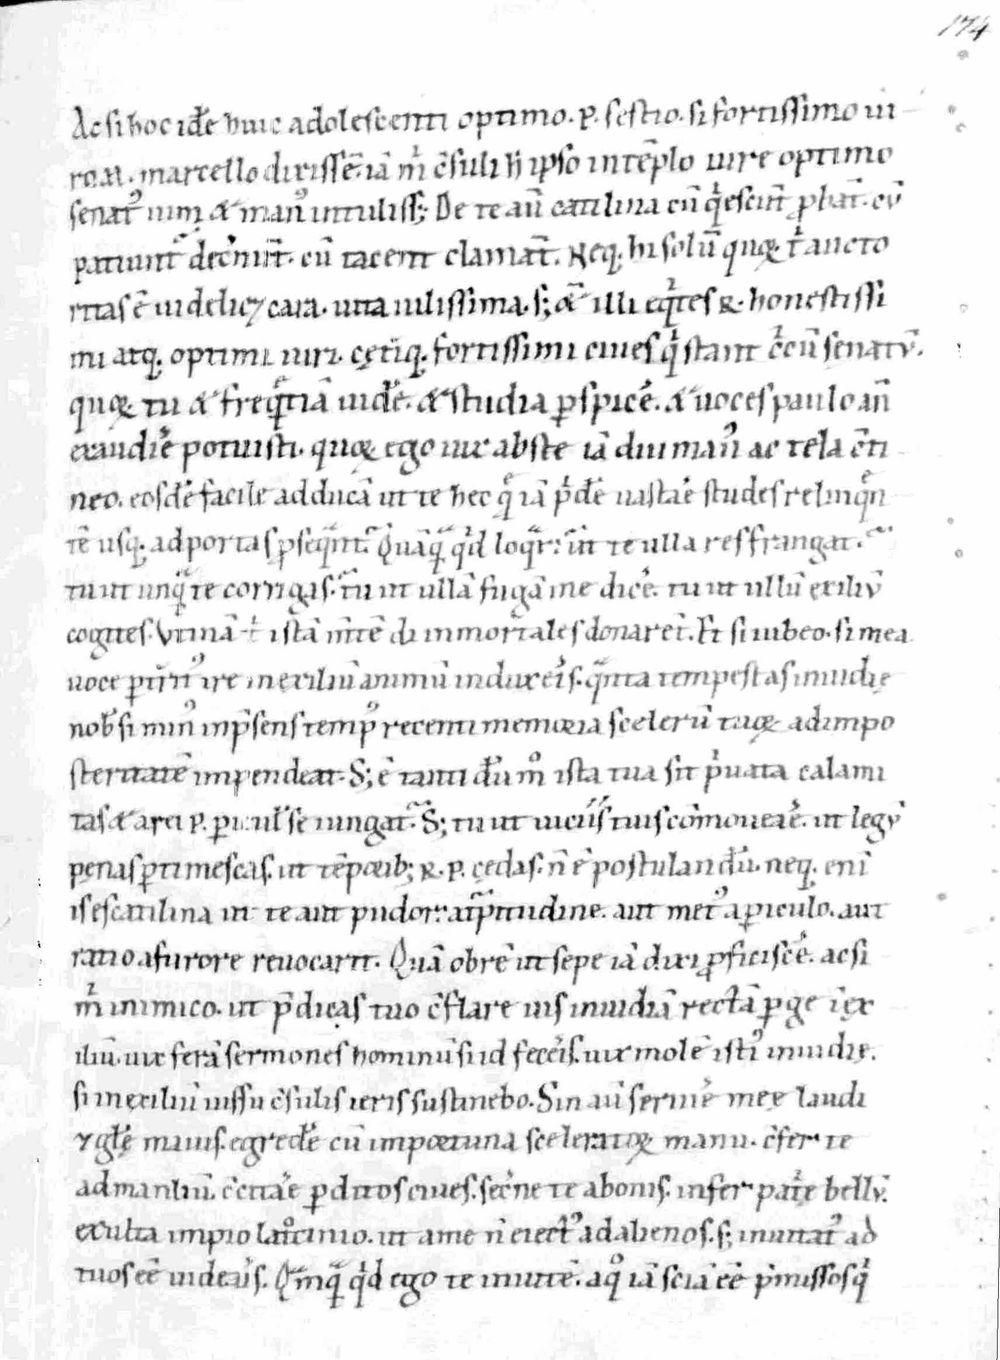 174
Ac si hoc idē huic adolescenti optimo. P. sestio. si fortissimo ui
ro. M. marcello dixissē. iā m̄ c̄suli h̄ ipso in tēplo iure optimo
senatꝰ uim & manꝰ intuliss&. De te aū catilina cū q̇escūt ꝓbāt. cū
patiunt̄ dec̄nūt. cū tacent clamāt. Neq. hi solū quoꝝ t̄ aucto
ritas ē uidelic& cara. uita uilissima. s; & illi eq̇tes R. honestissi
mi atq. optimi uiri. cęt̄iq. fortissimi ciues q̇ stant c̄cū senatū.
quoꝝ tu & freq̄ntiā uidē. & studia ꝑspicē. & uoces paulo añ
exaudiē potuisti. quoꝝ ego uix abs te iā diu manꝰ ac tela c̄ti
neo. eosdē facile adducā ut te hec q̄ iā p̄dē uastaē studes relinq̄n
tē usq. ad portas ꝓseq̄nt̄. Quāq̄ q̇d loq̄r: ut te ulla res frangat.
tu ut unq̄ te corrigas. tu ut ullā fugā me dicē. tu ut ullū exiliū
cogites. Vtinā t̄ istā m̄tē di inmortales donarēt. Et si uideo. si mea
uoce ꝑt̄ritꝰ ire in exiliū animū induxeīs. q̄nta tempestas inuidię
nob̄ si minꝰ in p̄sens tempꝰ recenti memoria scelerū tuoꝝ ad inpo
steritatē impendeat. S; ē tanti dūm̊ ista tua sit ṗuata calami
tas & a rei P. ꝑicul̄ seiungat. S; tu ut uiciis tuis cōmoueaē. ut legū
penas ꝑtimescas. ut tēporib; R. P. cędas. n̄ ē postulandū. neq. enī
is es catilina ut te aut pudor: a t̄pitudine. aut metꝰ a ꝑiculo. aut
ratio a furore reuocarit. Quā obrē ut sepe iā dixi ꝓficiscē. ac si
m̄ inimico. ut p̄dicas tuo c̄flare uis inuidiā rectā ꝑge ī ex
iliū. uix ferā sermones hominū si id feceīs. uix molē istiꝰ inuidię.
si in exiliū iussu c̄sulis ieris sustinebo. Sin aū seruiē mee laudi
& gl̄ę mauis. egredē cū importuna sceleratoꝝ manu. c̄fer te
ad manliū. c̄citaē ꝑditos ciues. sec̄ne te a bonis. infer pat̄ę bellū.
exulta impio lat̊cinio. ut a me n̄ eiectꝰ ad alienos. s; inuitatꝰ ad
tuos eē uidear̄s. Q̄mq̄ q̇d ego te inuitē. a q̊ iā sciā eē p̄missos q̇